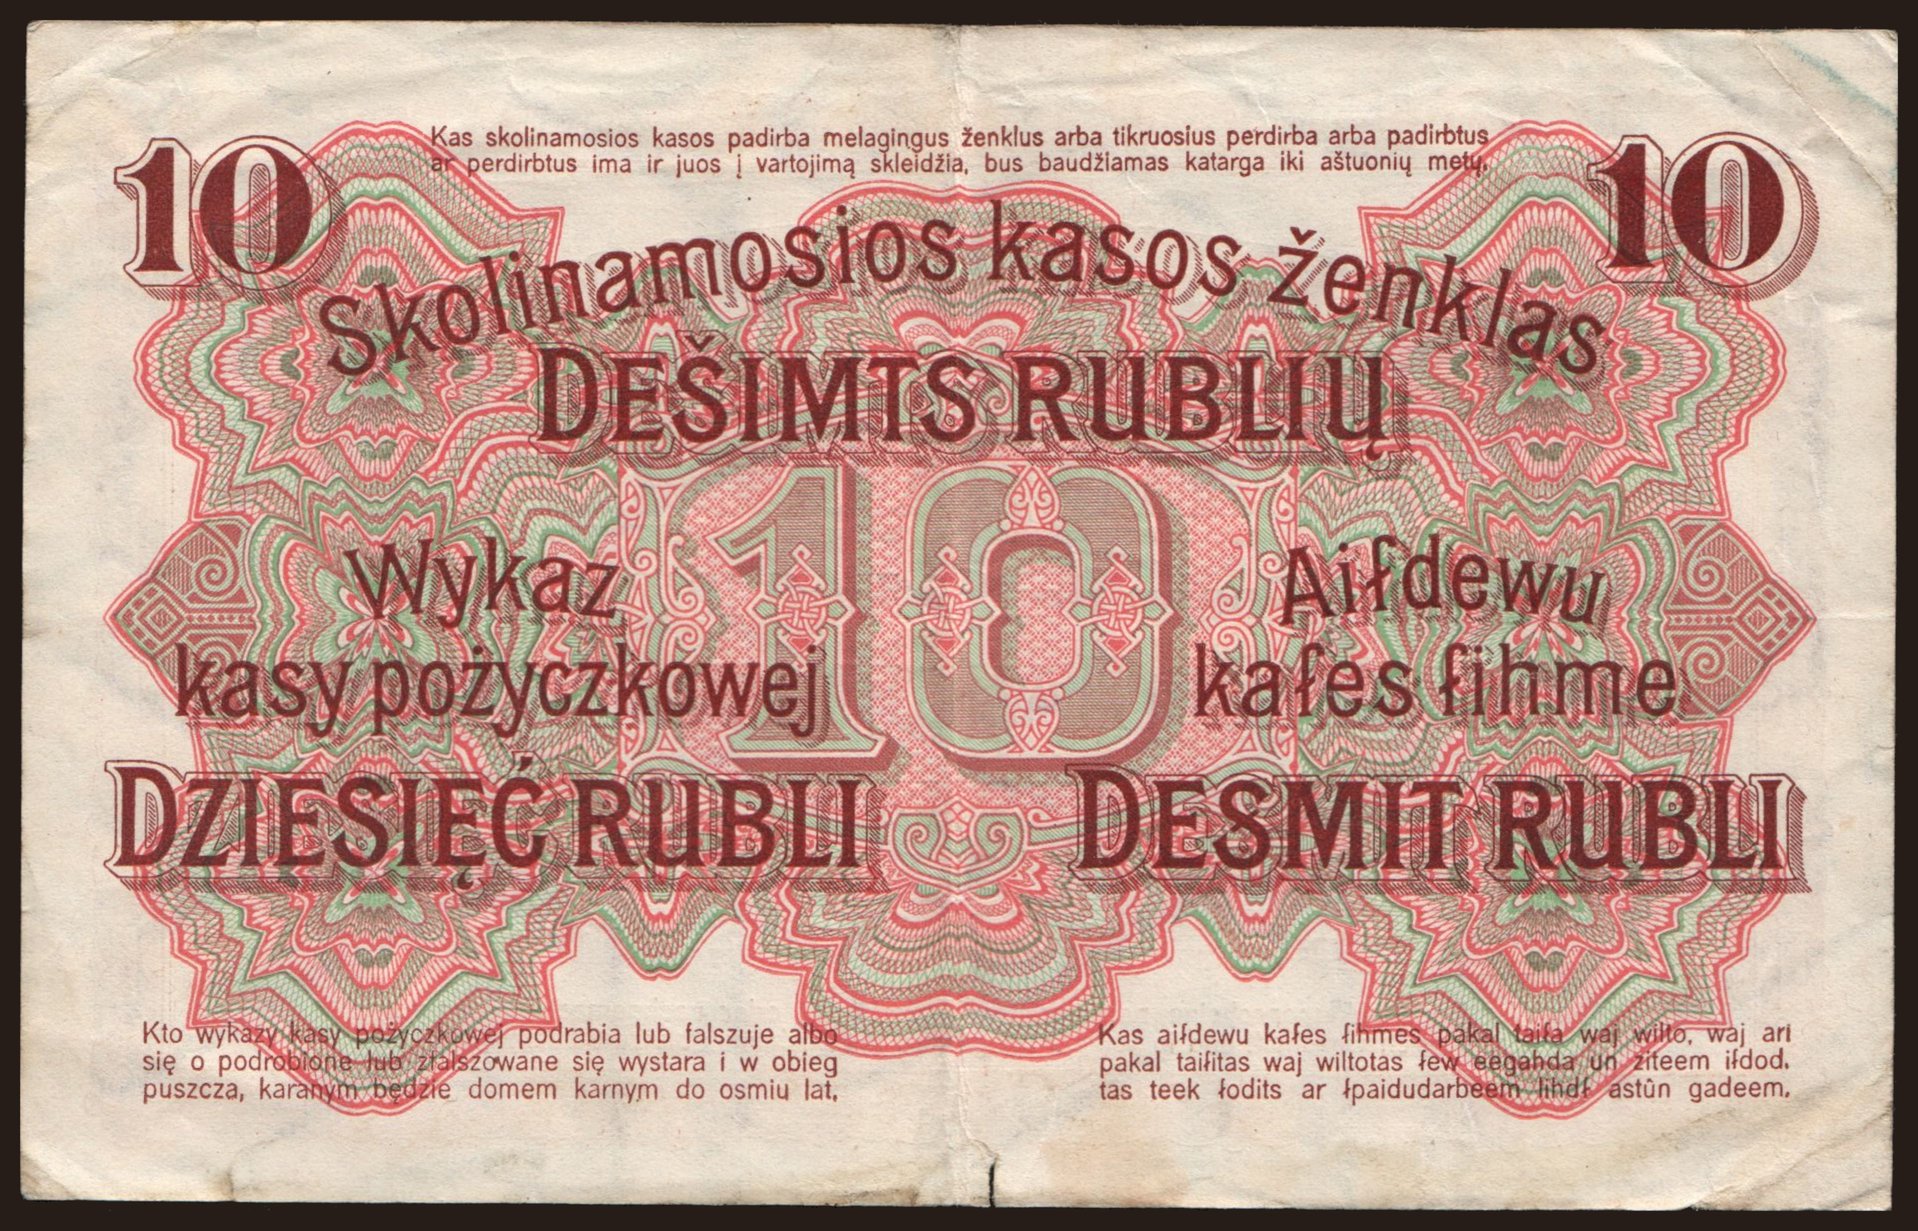 10 10
Kas skolinamosios kasos padirba melagingus ženklus arba tikruosius perdirba arba padirbtus
ar perdirbtus ima ir juos į vartojimą skleidžia, bus baudžiamas katarga iki aštuonių metų.
Skolinamosios kasos ženklas
DEŠIMTS RUBLIŲ
10
Wykaz
kasy pożyczkowej
DZIESIĘĆ RUBLI
Aiłdewu
kałes łihme
DESMIT RUBLI
Kto wykazy kasy pożyczkowej podrabia lub falszuje albo
się o podrobione lub zfalszowane się wystara i w obieg
puszcza, karanym będzie domem karnym do osmiu lat.
Kas aiłdewu kałes łihmes pakal taiła waj wilto, waj arı
pakal taiłitas waj wiltotas łew eegahda un ziteem iłdod.
tas teek łodits ar łpaidudarbeem lihdł astûn gadeem.